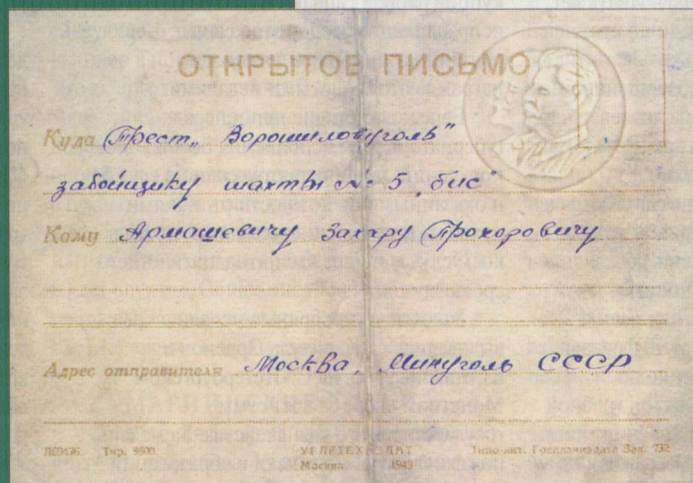 ОТКРЫТОЕ ПИСЬМО
Куда Трест „Ворошиловуголь"
забойщику шахты № 5 „бис"
Кому Армашевичу Захару Прохоровичу
Адрес отправителя Москва, Минуголь СССР
Тир. 9500. УГЛЕТЕХИЗДАТ Типо-лит. Госпланиздата Зак. 732
Москва 1949